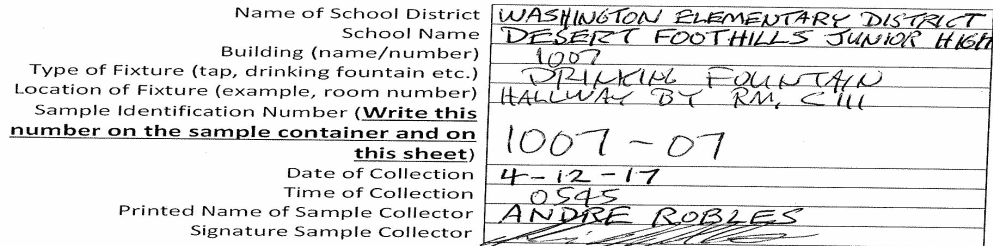 Name of School District WASHINGTON ELEMENTARY DISTRICT
School Name DESERT FOOTHILLS JUNIOR HIGH
Building (name/number) 1007
Type of Fixture (tap, drinking fountain etc.) DRINKING FOUNTAIN
Location of Fixture (example, room number) HALLWAY BY RM. C111
Sample Identification Number (Write this
number on the sample container and on
this sheet) 1007-07
Date of Collection 4-12-17
Time of Collection 0545
Printed Name of Sample Collector ANDRE ROBLES
Signature Sample Collector